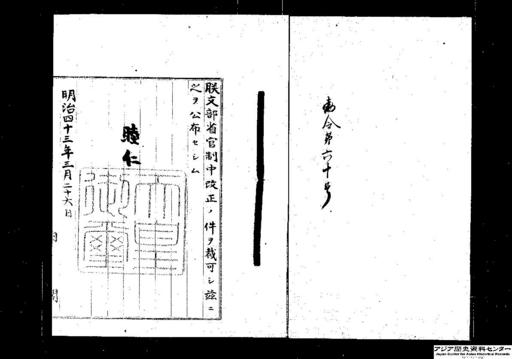 勅令第六十号
朕文部省官制中改正ノ件ヲ裁可シ茲ニ
之ヲ公布セシム
睦仁
天皇御璽
明治四十三年三月二十六日
アジア歴史資料センター
Japan Center for Asian Historical Records